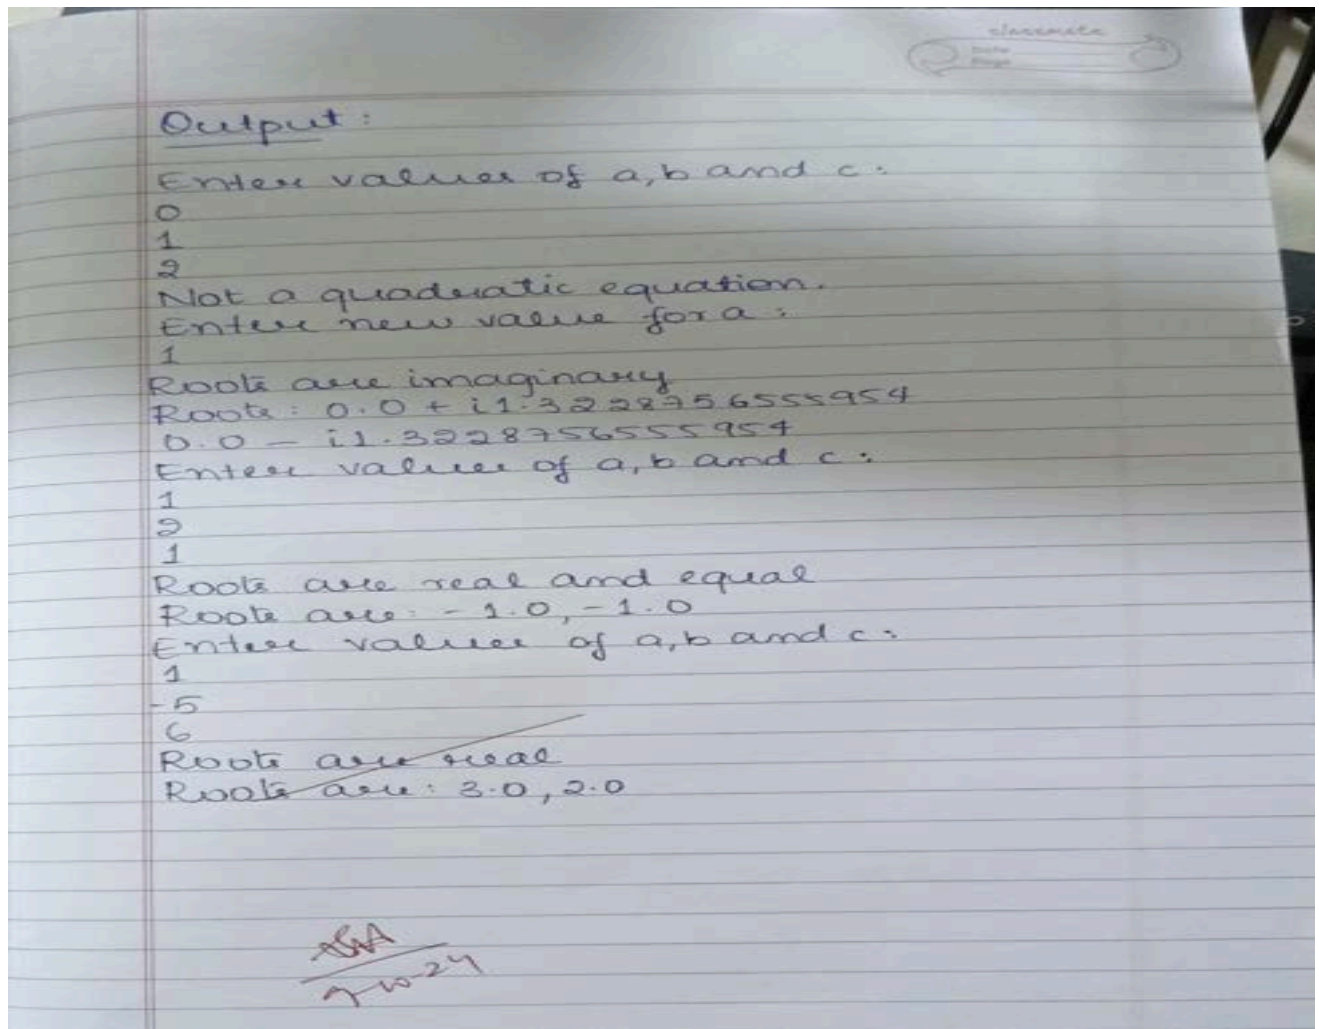 classmate
Date
Page
Output:
Enter values of a, b and c:
0
1
2
Not a quadratic equation.
Enter new value for a:
1
Roots are imaginary
Roots: 0.0 + i1.3228756555954
0.0 - i1.3228756555954
Enter values of a, b and c:
1
2
1
Roots are real and equal
Roots are: -1.0, -1.0
Enter values of a, b and c:
1
-5
6
Roots are real
Roots are: 3.0, 2.0
9-10-24